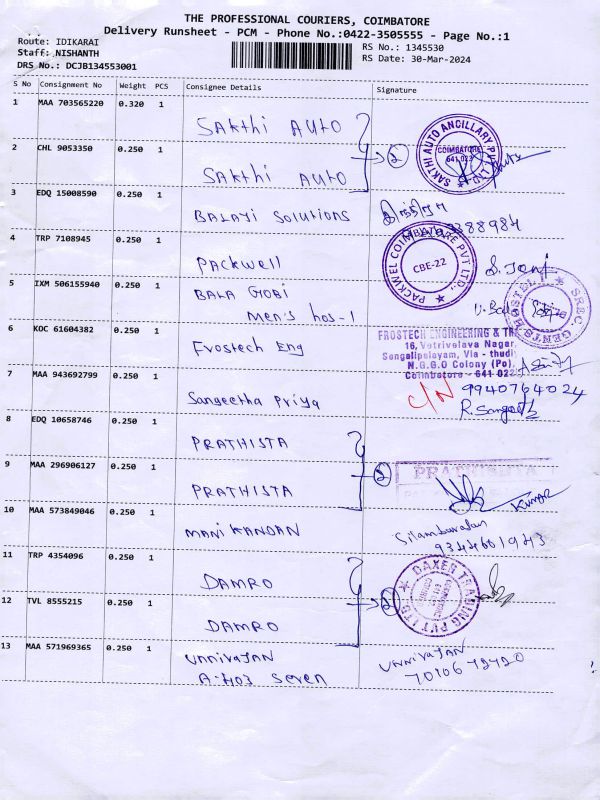 THE PROFESSIONAL COURIERS, COIMBATORE
Delivery Runsheet - PCM - Phone No.:0422-3505555 - Page No.:1
Route: IDIKARAI
RS No.: 1345530
Staff: NISHANTH
RS Date: 30-Mar-2024
DRS No.: DCJB134553001
S No Consignment No Weight PCS Consignee Details Signature
1 MAA 703565220 0.320 1 Sakthi Auto
2 CHL 9053350 0.250 1 Sakthi Auto 2
SAKTHI AUTO ANCILLARY PVT. LTD. COIMBATORE 641 023
3 EDQ 15008590 0.250 1 Balaji Solutions
4 TRP 7108945 0.250 1 Packwell
PACKWEL COIMBATORE PVT. LTD., CBE-22
5 IXM 506155940 0.250 1 Bala Gobi
Men's hos-1
SREC GENTS HOSTEL
6 KOC 61604382 0.250 1 Frostech Eng
FROSTECH ENGINEERING & TR
16, Vetrivelava Nagar,
Sangalipalayam, Via - thudi
N.G.G.O Colony (Po),
Coimbatore - 641 022
7 MAA 943692799 0.250 1 Sangeetha Priya
C/N 9940764024
R. Sangeeth
8 EDQ 10658746 0.250 1 PRATHISTA
9 MAA 296906127 0.250 1 PRATHISTA 2
KUMAR
10 MAA 573849046 0.250 1 MANIKANDAN
Silambarasan
9344601943
11 TRP 4354096 0.250 1 DAMRO
12 TVL 8555215 0.250 1 DAMRO 2
13 MAA 571969365 0.250 1 UNNIRAJAN
A:403 Seven
UNNIRAJAN